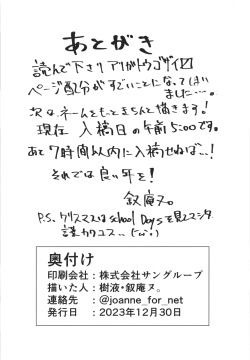 あとがき
読んで下さりアリガトウゴザイ〼
ページ配分がすごいことになってしまい
ました…。
次は、ネームをもっときちんと描きます！
現在 入稿日の午前5:00です。
あと7時間以内に入稿せねば…！
それでは良い年を！
叙庵ヌ。
P.S. クリスマスはSchool Daysを見てマシタ
奥付け
印刷会社：株式会社サングループ
描いた人：樹液・叙庵ヌ。
連絡先　：@joanne_for_net
発行日　：2023年12月30日